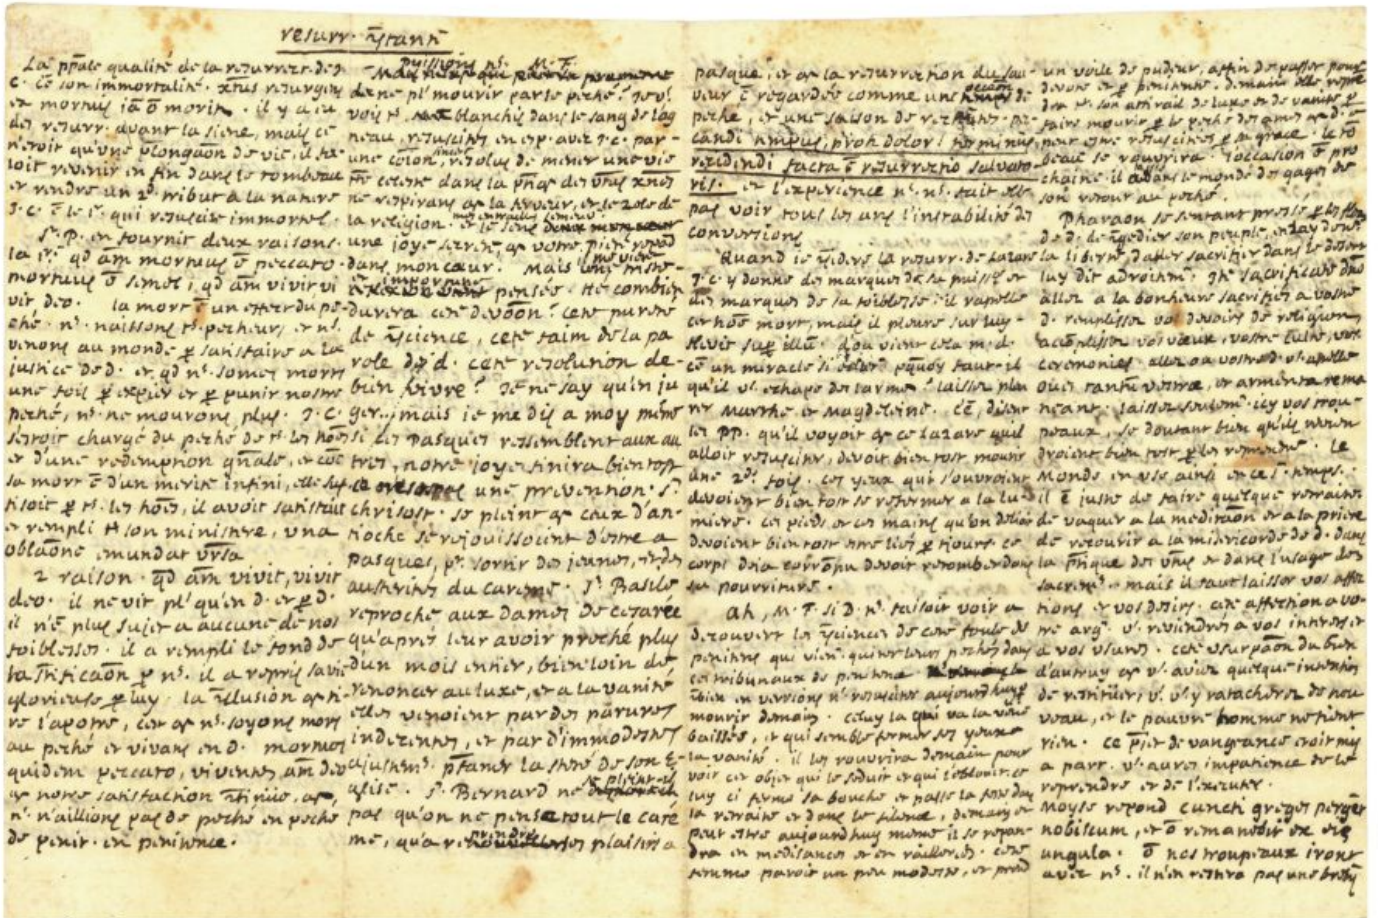 resurr. c̄stante
La pp̄ale qualité de la resurrect. de J.
C. c'ē son immortalité. xtus resurgens
ex mortuis iā ō morit. il y a eu
des resurr. avant la siene, mais ce
n'etoit qu'une de vie, il fa-
loit revenir en fin dans le tombeau
et rendre un 2d. tribut a la nature
J. C. ē le 1er. qui resuscite immortel.
St. P. en fournit deux raisons.
la 1re. qd̄ am̄ mortuus ē peccato.
mortuus ē semel, qd̄ am̄ vivit vi
vit deo. la mort ē un effet du pe-
ché. ns. naissons ts. pecheurs, et ns.
venons au monde pr̄ satisfaire a la
justice de d. et qd̄ ns. somes morts
une fois pr̄ expier et pr̄ punir nostre
peché, ns. ne mourons plus. J. C.
s'etoit chargé du peché de ts. les hōes
et d'une redemption gn̄ale, et cōe
sa mort ē d'un merite infini, elle suf
fisoit pr̄ ts. les hōes, il avoit satisfait
et rempli tt son ministere, una
oblaōne emundat
2 raison. qd̄ am̄ vivit, vivit
deo. il ne vit pl' qu'en d. et pr̄ d.
il n'ē plus sujet a aucune de nos
foiblesses. il a rempli le fond de
la pr̄ ns. il a repris sa vie
glorieuse pr̄ luy. la c̄clusion q̄ ti-
re l'apotre, c'et q̄ ns. soyons mors
au peché et vivans en d. mortuos
quidem peccato, viventes am̄ deo
q̄ notre satisfaction c̄tinüe, q̄
ns. n'aillions pas de peché en peché
de penit. en penitence.
puissions ns. M. F.
ne pl' mourir par le peché! Je vs.
vois ts. blanchis dans le sang de l'ag
neau, resuscités en esp. avec J. C. par
une cōion, resolus de mener une vie
tte celeste dans la des vrays xnēs
ne respirans q̄ la ferveur, et le zele de
la religion.
une joye secrete, q̄ votre pieté repād
dans mon cœur. Mais
pensée. He combien
durera cete devoōn? cete pureté
de c̄science, cete faim de la pa
role de d. cete resolution de
bien vivre? Je ne say qu'en ju
ger, mais je me dis a moy même
si ces Pasques ressemblent aux au
tres, notre joye finira bientost
une prevention. St.
chrisost. se pleint q̄ ceux d'an-
tioche se rejouissoient d'estre a
Pasques, pr. sortir des jeunes, et des
austerités du careme. St. Basile
reproche aux dames de cesarée
qu'apres leur avoir preché plus
d'un mois entier, bien loin de
renoncer au luxe, et a la vanité
elles venoient par des parures
indecentes, et par d'immodestes
ajustemts. la fete de son E-
glise. St. Bernard ne se pleint-il
pas qu'on ne pense tout le caré
me, qu'a reprendre ses plaisirs a
pasque, et q̄ la resurrection du sau-
veur ē regardée comme une occasion de
peché, et une saison de rechutes. pec-
candi tempus, proh dolor! terminus
recidendi facta ē resurrectio salvato
ris. et l'experience ns. ns. fait elle
pas voir tous les ans l'instabilité des
convertions
Quand je c̄sidere la resurr. de Lazare
J. C. y donne des marques de sa puissce. et
des marques de sa foiblesse. il rapelle
cet hōe mort, mais il pleure sur luy-
flevit sup̄ illū. d'ou vient cela m. d.
c'ē un miracle si pquoy faut-il
qu'il vs. echape des larmes? laisses pleu
rer Marthe et Magdeleine. c'ē, disent
les PP. qu'il voyoit q̄ ce Lazare qu'il
alloit resusciter, devoit bien tost mourir
une 2de. fois. ces yeux qui s'ouvroient
devoient bien tost se refermer a la lu-
miere. ces pieds et ces mains qu'on delioit
devoient bien tost etre liés pr̄ tjours. ce
corps deja corrōpu devoit retomber dans
sa pourriture.
Ah, M. F. si D. ns. faisoit voir a
decouvert les c̄sciences de cete foule de
penitens qui vien. quiter leurs pechés dans
ces tribunaux de penitence
cōbien en verrions ns. resusciter aujourdhuy pr̄
mourir demain. celuy la qui va la vüe
baissée, et qui semble fermer ses yeux a
la vanité. il les rouvrira demain pour
voir cet objet qui le seduit et qui l'eblouit. ce
luy ci ferme sa bouche et passe la fete dans
la retraite et dans le silence, demain et
peut etre aujourdhuy meme il se repan-
dra en medisances et en railleries. cete
femme paroit un peu modeste, et prend
un voile de pudeur, affin de passer pour
devote et pr̄ penitente. demain elle repre
dra tt son attirail de luxe et de vanité pr̄
faire mourir pr̄ le peché des ames q̄ d. ē
peut etre resuscitées pr̄ sa grace. le tō
beau se rouvrira. l'occasion ē pro
chaine. il a dans le monde des gages de
son retour au peché.
Pharaon se sentant pressé pr̄ les
de d. de c̄gedier son peuple, en luy donāt
la liberté d'aller sacrifier dans le desert
luy dit adroitemt. Ite sacrificate dn̄o
allez a la bonheure sacrifiés a vostre
d. remplisses vos devoirs de religion,
acōplisses vos vœux, vostre culte, vos
ceremonies. alles ou vostre d. vs. apelle
oves tantū vestræ, et armenta rema
neant. laisses seulemt. icy vos trou-
peaux, se doutant bien qu'ils revien
droient bien tost pr̄ les reprendre. le
Monde en use ainsi en ce s. temps.
il ē juste de faire quelque retraite
de vaquer a la meditaōn et a la priere
de recourir a la misericorde de d. dans
la p̄tique des vertus et dans l'usage des
sacremts. mais il faut laisser vos affec
tions et vos desirs. cete affection a vo-
tre argt. vs. reviendrés a vos interests et
a vos usures. cete usurpaōn du bien
d'autruy q̄ vs. aviez quelque intention
de restitüer, vs. vs. y ratacherez de nou
veau, et le pauvre homme ne tient
rien. ce p̄jet de vangeance etoit mis
a part. vs. aures impatience de le
reprendre et de l'executer.
Moyse repond cuncti greges pergēt
nobiscum, et ō remanebit ex eis
ungula. ō nos troupeaux iront
avec ns. il n'en restera pas une brebis